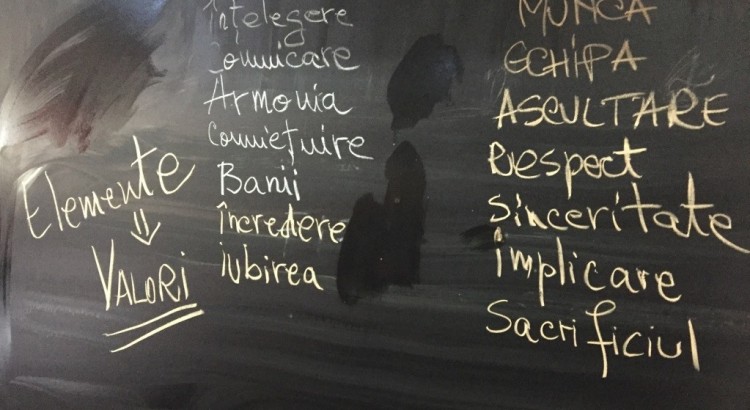 Elemente
⇓
VALORI
Înțelegere
Comuicare
Armonia
Conviețuire
Banii
încredere
iubirea
MUNCA
ECHIPA
ASCULTARE
Respect
Sinceritate
implicare
Sacrificiul